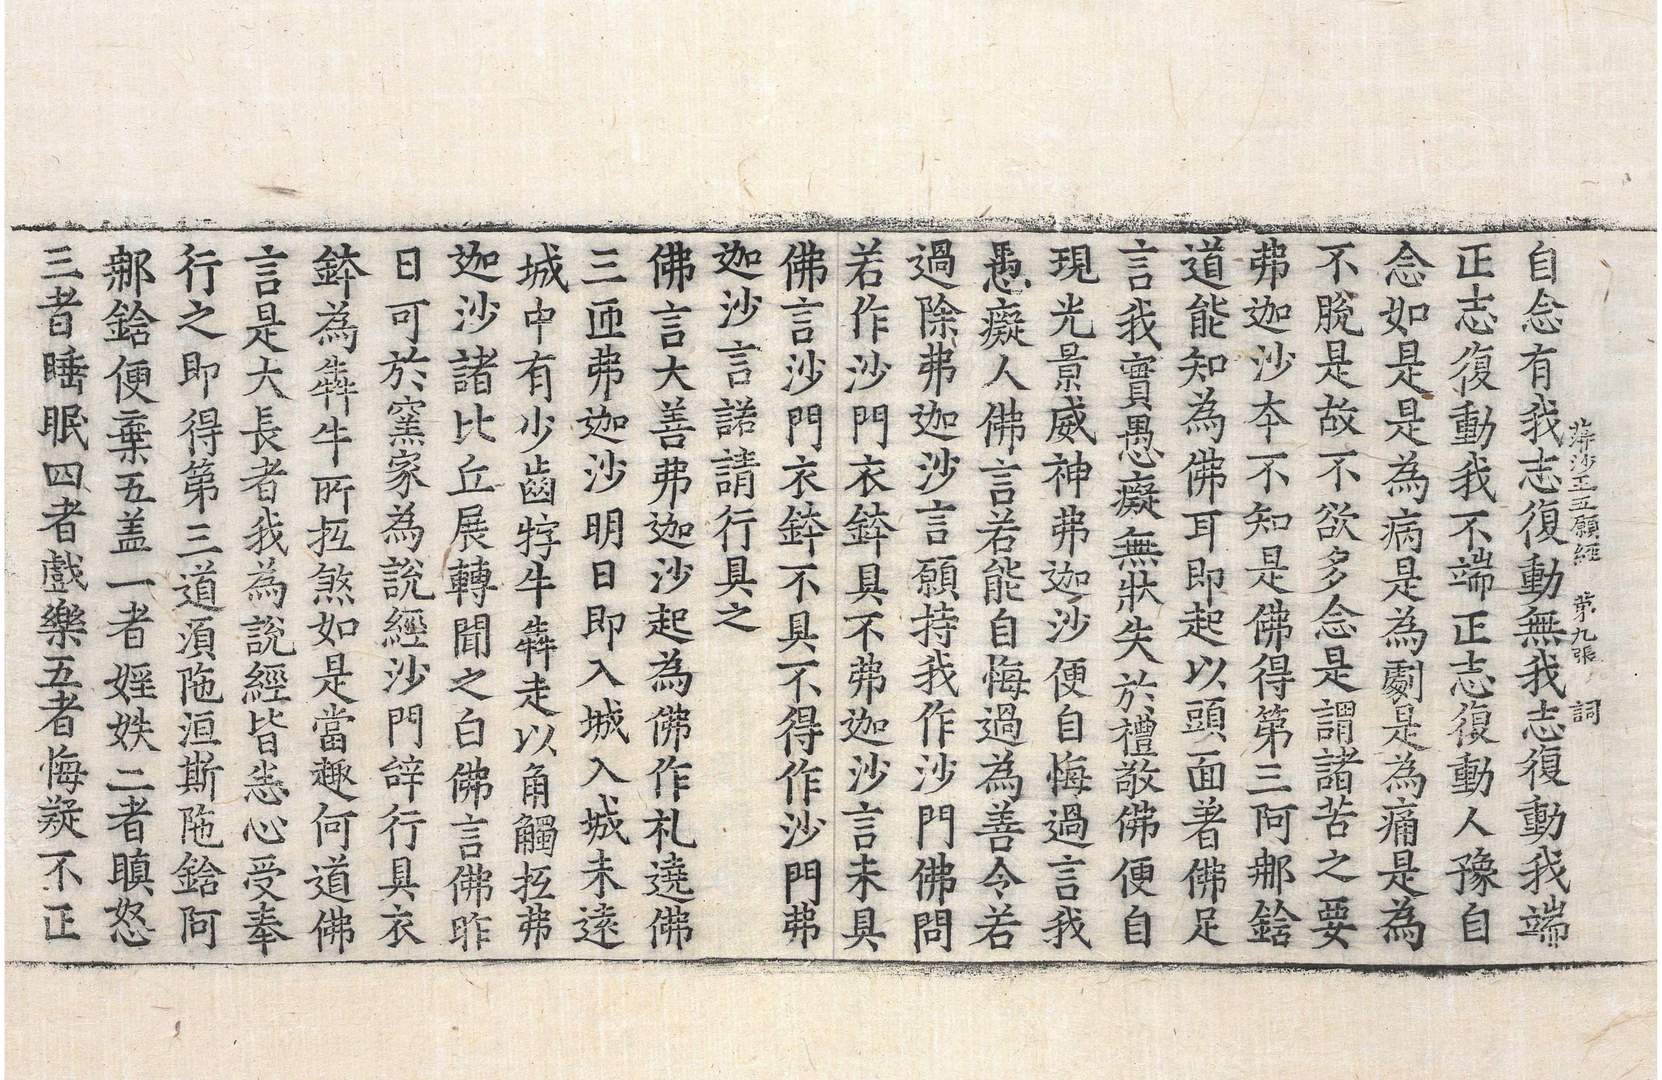 蓱沙王五願經 第九張 詞
自念有我志復動無我志復動我端
正志復動我不端正志復動人豫自
念如是是為病是為劇是為痛是為
不脫是故不欲多念是謂諸苦之要
弗迦沙本不知是佛得第三阿那鋡
道能知為佛耳即起以頭面著佛足
言我實愚癡無狀失於禮敬佛便自
現光景威神弗迦沙便自悔過言我
愚癡人佛言若能自悔過為善令若
過除弗迦沙言願持我作沙門佛問
若作沙門衣鉢具不弗迦沙言未具
佛言沙門衣鉢不具不得作沙門弗
迦沙言諾請行具之
佛言大善弗迦沙起為佛作礼遶佛
三匝弗迦沙明日即入城入城未遠
城中有少齒牸牛犇走以角觸抂弗
迦沙諸比丘展轉聞之白佛言佛昨
日可於窯家為說經沙門辝行具衣
鉢為犇牛所抂煞如是當趣何道佛
言是大長者我為說經皆悉心受奉
行之即得第三道湏陁洹斯陁鋡阿
那鋡便棄五盖一者婬妷二者瞋怒
三者睡眠四者戲樂五者悔疑不正